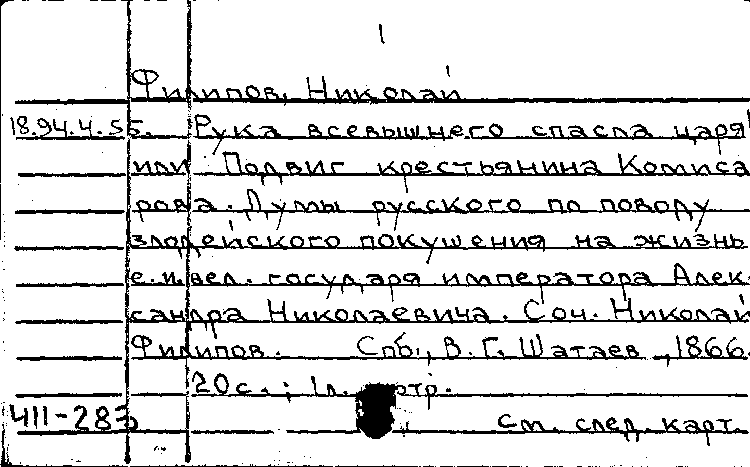 1
Филипов, Николай
18.94.4.55. Рука всевышнего спасла царя!
или Подвиг крестьянина Комиса
рова. Думы русского по поводу
злодейского покушения на жизнь
е.и.вел. государя императора Алек-
сандра Николаевича. Соч. Николай
Филипов. Спб., В.Г. Шатаев, 1866.
20с.; 1л.
411-283 см. след. карт.